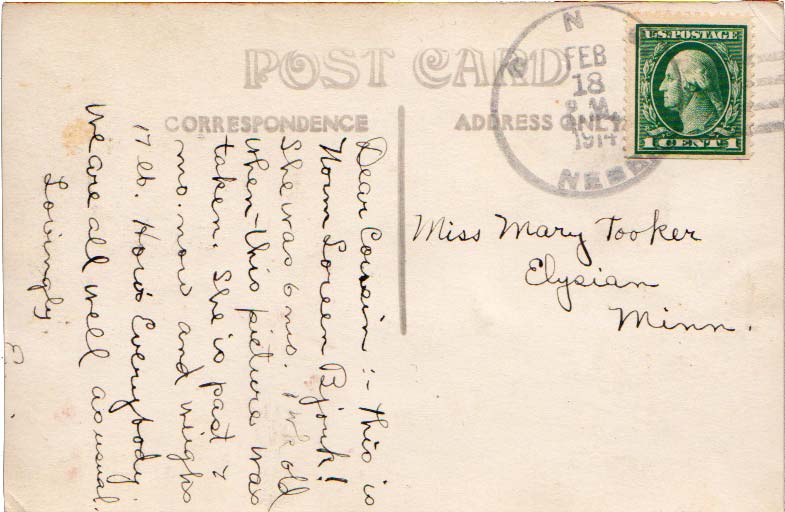 POST CARD
CORRESPONDENCE
ADDRESS ONLY
FEB
18
M
1914
NEBR
U.S. POSTAGE
1 CENT 1
Dear Cousin :- This is
Norm Loreen
She was 6 mo. old
when this picture was
taken. She is past 7
mo. now and weighs
17 lb. How's Everybody
We are all well as usual.
Lovingly,
E.
Miss Mary Tooker
Elysian
Minn.